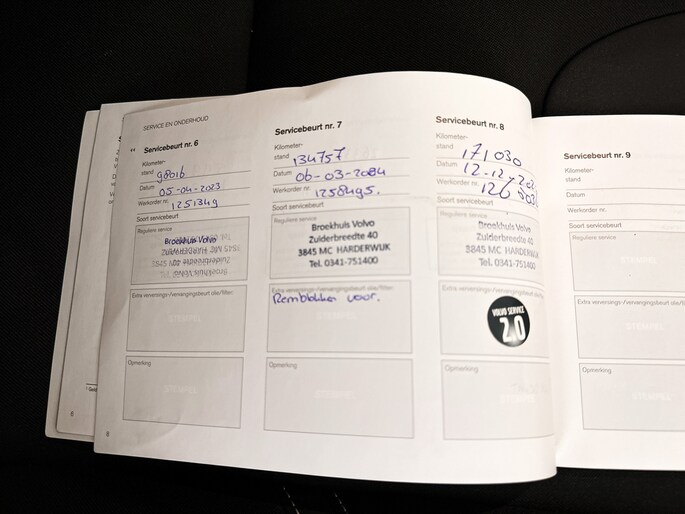 SERVICE EN ONDERHOUD
Servicebeurt nr. 6
Kilometer-
stand 98016
Datum 05-04-2023
Werkorder nr. 1251349
Soort servicebeurt
Reguliere service
Broekhuis Volvo
Extra verversings-/vervangingsbeurt olie/filter:
STEMPEL
Opmerking
STEMPEL
Servicebeurt nr. 7
Kilometer-
stand 134757
Datum 06-03-2024
Werkorder nr.
Soort servicebeurt
Reguliere service
Broekhuis Volvo
Zuiderbreedte 40
3845 MC HARDERWIJK
Tel. 0341-751400
Extra verversings-/vervangingsbeurt olie/filter:
Remblokken voor.
Opmerking
STEMPEL
Servicebeurt nr. 8
Kilometer-
stand 171030
Datum
Werkorder nr.
Soort servicebeurt
Reguliere service
Broekhuis Volvo
Zuiderbreedte 40
3845 MC HARDERWIJK
Tel. 0341-751400
Extra verversings-/vervangingsbeurt
VOLVO SERVICE
2.0
Opmerking
Servicebeurt nr. 9
Kilometer-
stand
Datum
Werkorder nr.
Soort servicebeurt
Reguliere service
STEMPEL
Extra verversings-/vervangingsbeurt olie/filter:
STEMPEL
Opmerking
STEMPEL
6
8